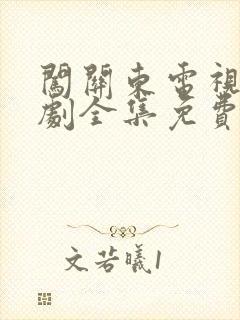 闖關東電視
劇全集免費
文若曦1